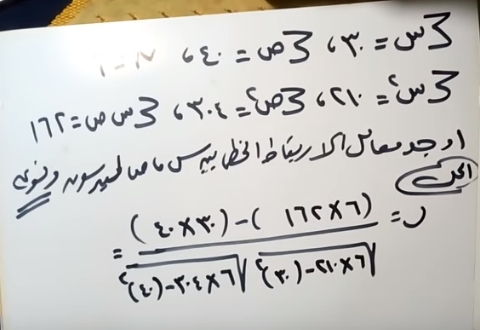 مجـ س = ٣٠ ، مجـ ص = ٤٠ ،
مجـ س² = ٢١٠ ، مجـ ص² = ٣٠٤ ، مجـ س ص = ١٦٢
اوجد معامل الارتباط الخطي بين س ، ص لبيرسون ونوعه
الحل
ر = (٦×١٦٢) - (٣٠×٤٠) / √٦×٢١٠-(٣٠)² √٦×٣٠٤-(٤٠)² =